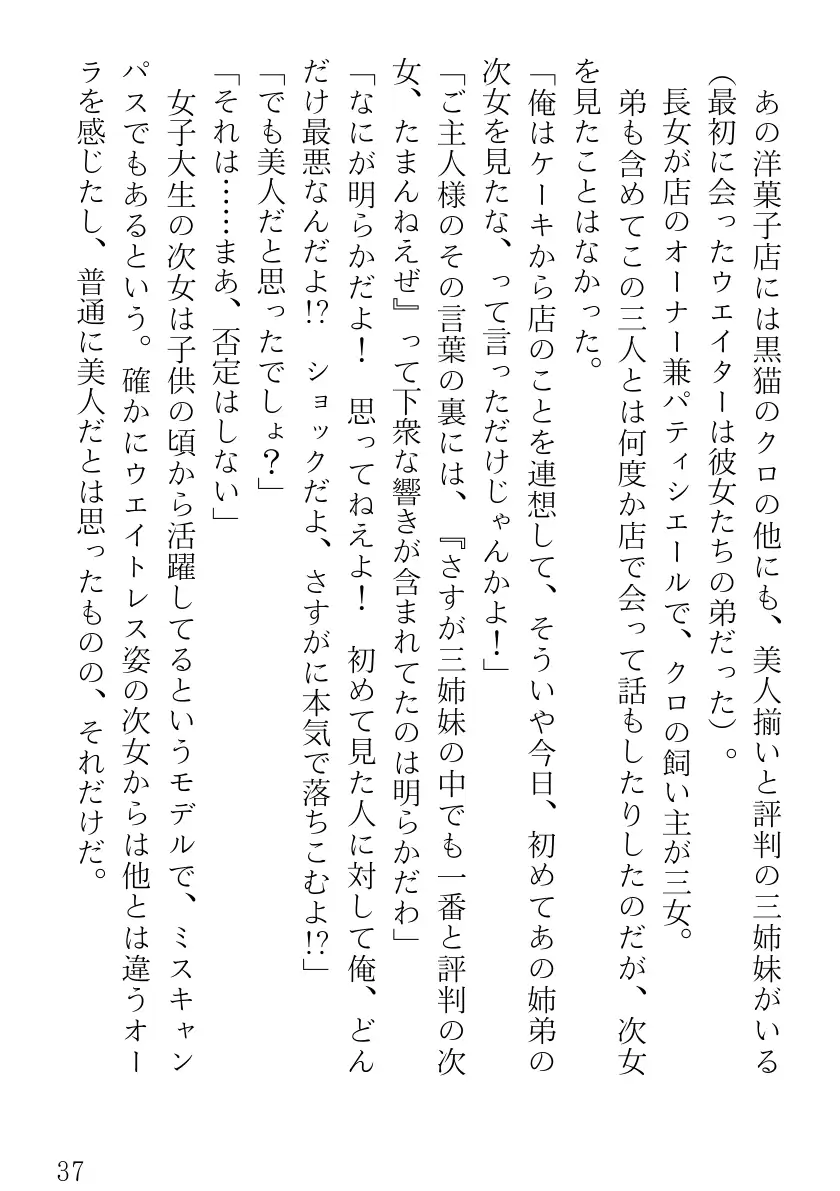 あの洋菓子店には黒猫のクロの他にも、美人揃いと評判の三姉妹がいる
（最初に会ったウェイターは彼女たちの弟だった）。
　長女が店のオーナー兼パティシエールで、クロの飼い主が三女。
　弟も含めてこの三人とは何度か店で会って話もしたりしたのだが、次女
を見たことはなかった。
「俺はケーキから店のことを連想して、そういや今日、初めてあの姉弟の
次女を見たな、って言っただけじゃんかよ！」
「ご主人様のその言葉の裏には、『さすが三姉妹の中でも一番と評判の次
女、たまんねえぜ』って下衆な響きが含まれてたのは明らかだわ」
「なにが明らかだよ！　思ってねえよ！　初めて見た人に対して俺、どん
だけ最悪なんだよ!?　ショックだよ、さすがに本気で落ちこむよ!?」
「でも美人だと思ったでしょ？」
「それは……まあ、否定はしない」
　女子大生の次女は子供の頃から活躍してるというモデルで、ミスキャン
パスでもあるという。確かにウエイトレス姿の次女からは他とは違うオー
ラを感じたし、普通に美人だとは思ったものの、それだけだ。
37